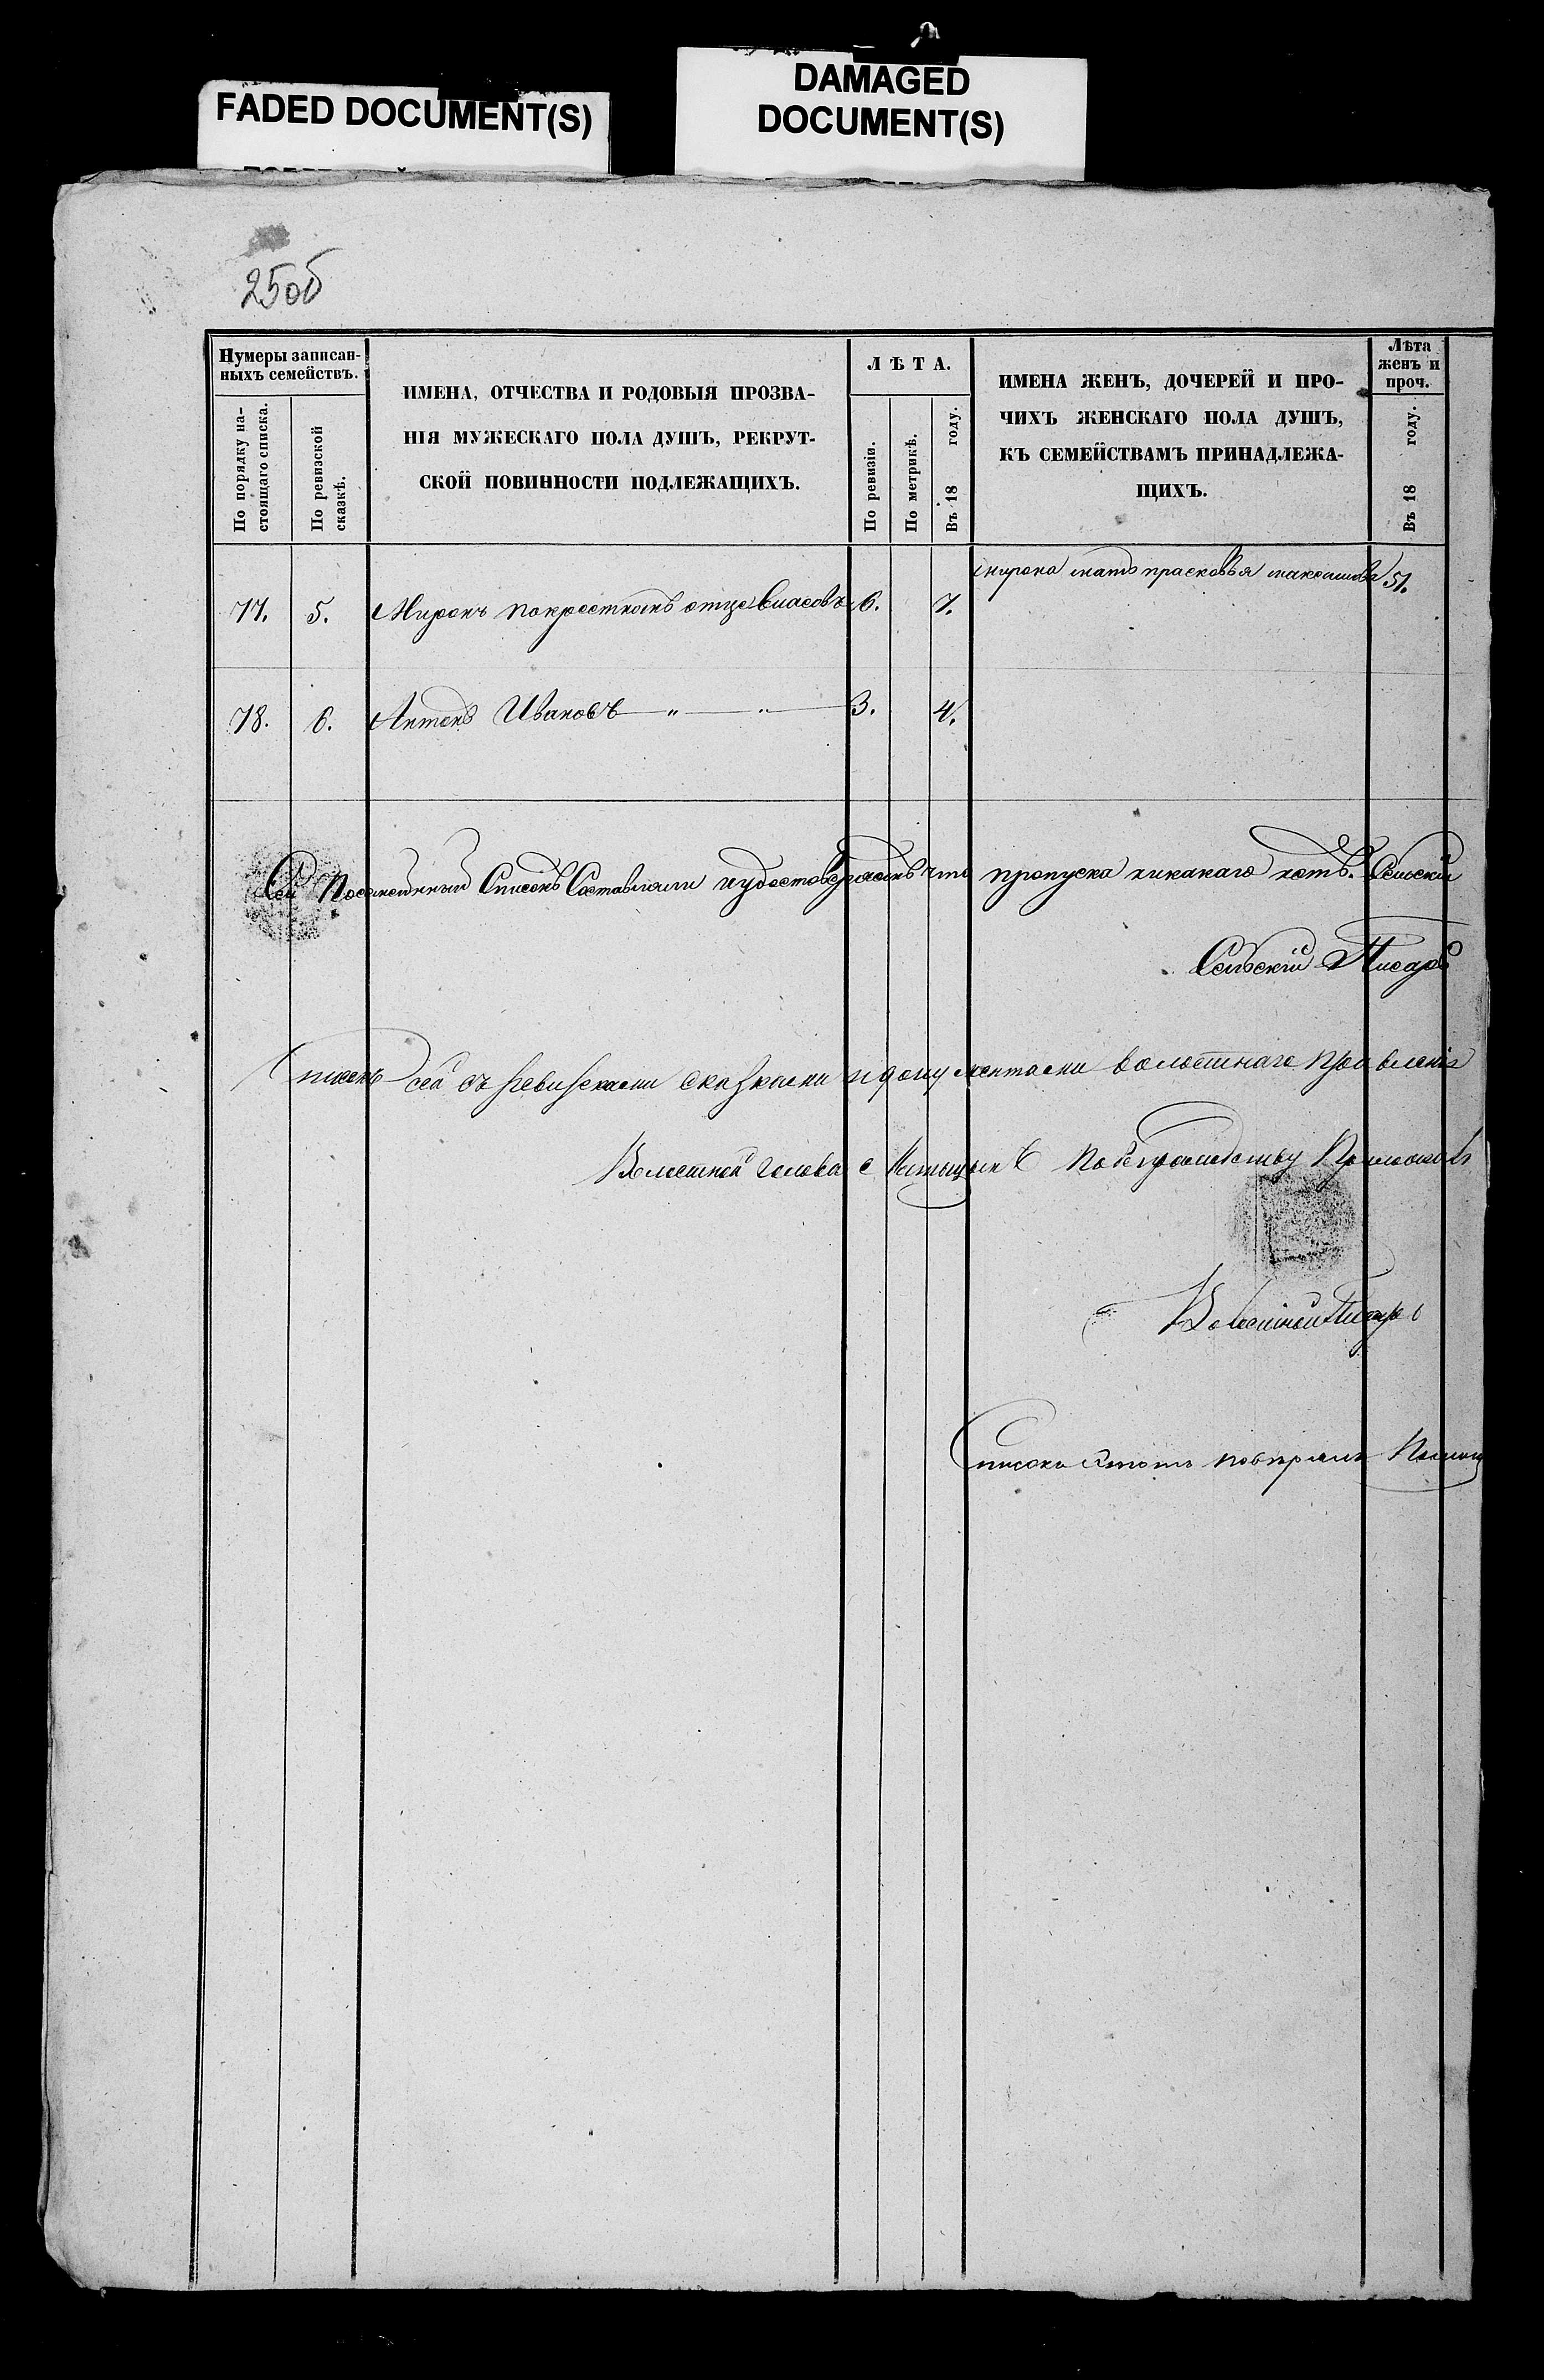 FADED DOCUMENT(S)
DAMAGED
DOCUMENT(S)
25об
Нумеры записан-
ныхъ семействъ.
По порядку на-
стоящаго списка.
По ревизской
сказкѣ.
ИМЕНА, ОТЧЕСТВА И РОДОВЫЯ ПРОЗВА-
НІЯ МУЖЕСКАГО ПОЛА ДУШЪ, РЕКРУТ-
СКОЙ ПОВИННОСТИ ПОДЛЕЖАЩИХЪ.
ЛѢТА.
По ревизіи.
По метрикѣ.
Въ 18 году.
ИМЕНА ЖЕНЪ, ДОЧЕРЕЙ И ПРО-
ЧИХЪ ЖЕНСКАГО ПОЛА ДУШЪ,
КЪ СЕМЕЙСТВАМЪ ПРИНАДЛЕЖА-
ЩИХЪ.
Лѣта
женъ и
проч.
Въ 18 году.
мирона мать прасковья максимова 51.
77. 5. Миронъ покрестномъ отце Власовъ 6. 7.
78. 6. Антонъ Ивановъ — „ — „ — 3. 4.
Сей Посемейный Списокъ Составляли иудостоверяемъ что пропуска никакаго нетъ. Сельскій
Сельскій Писарь
Списокъ сей съ ревизскими сказками идокументами волостнаго правленія
Волостной голова Приложилъ
Волостной Писарь
Списокъ этотъ повѣрялъ